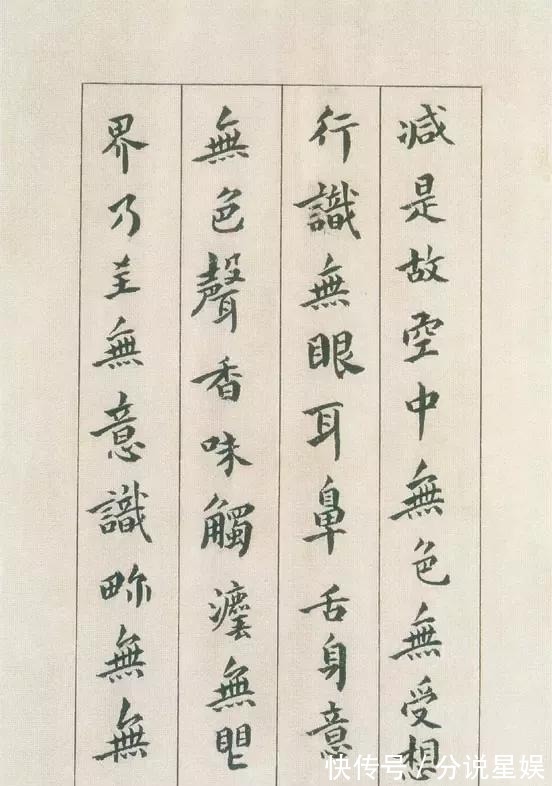 減是故空中無色無受想
行識無眼耳鼻舌身意
無色聲香味觸灋無眼
界乃至無意識畍無無
快传号/分说星娱